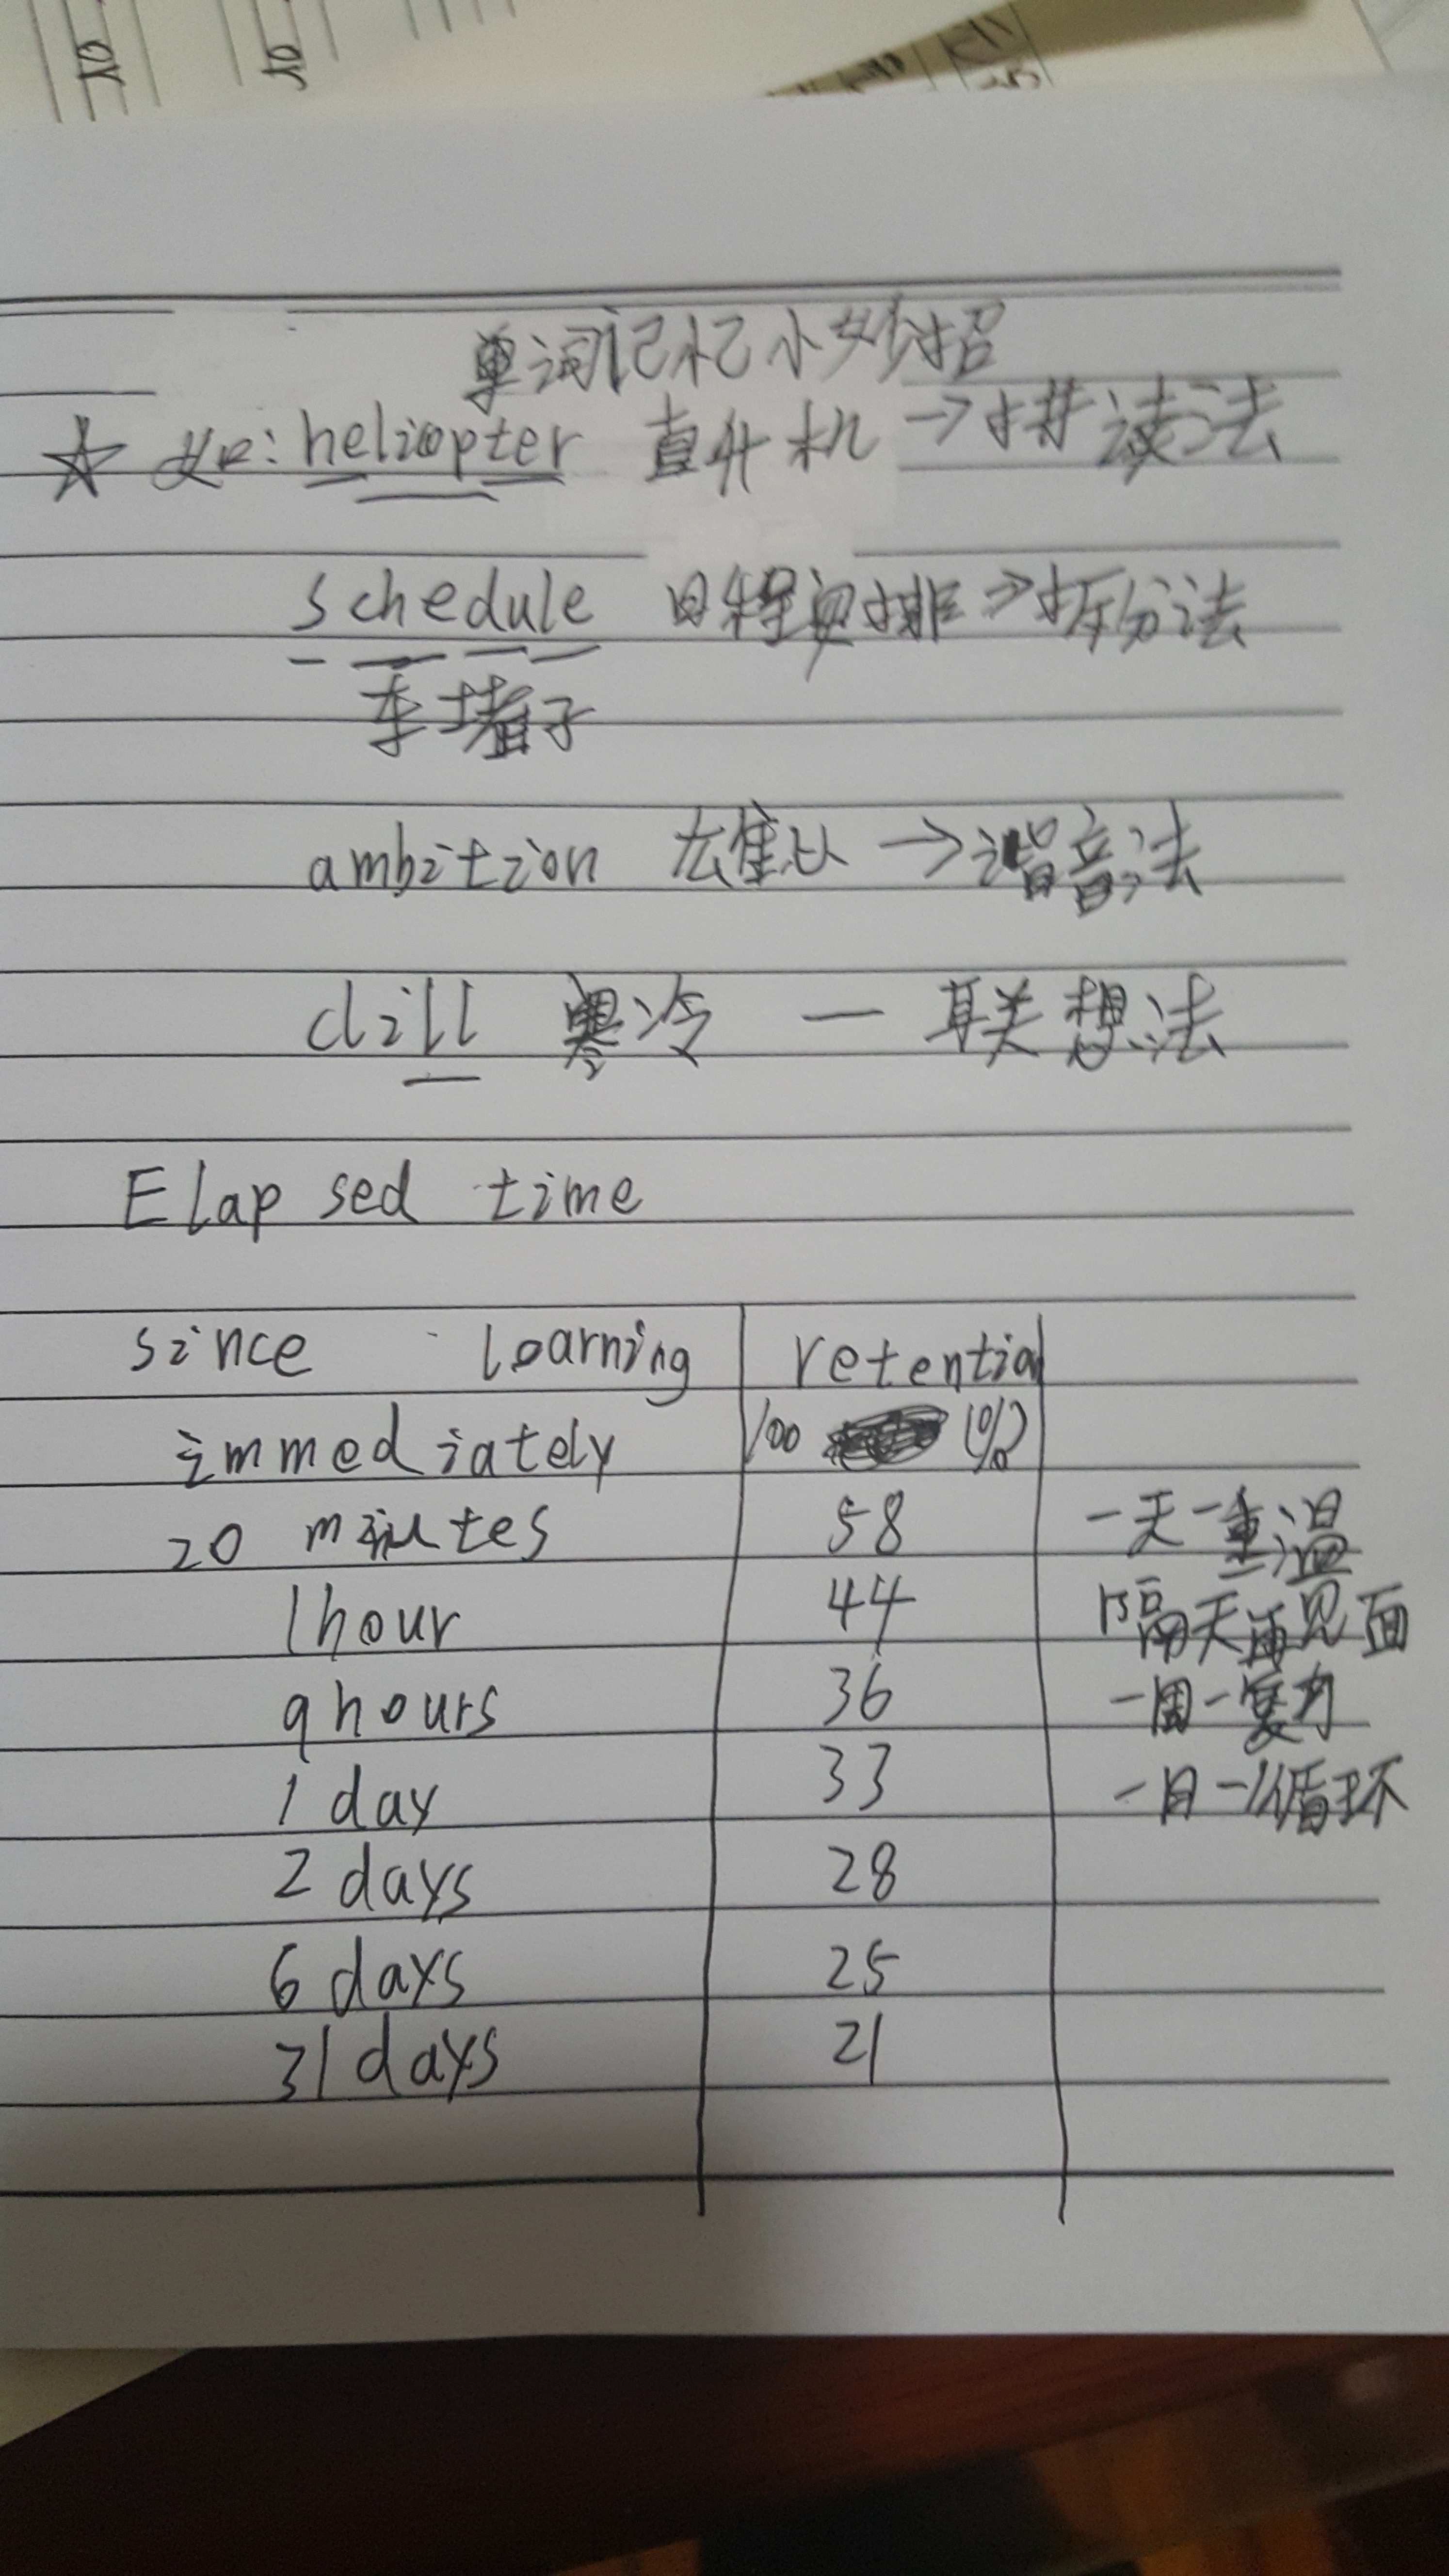 单词记忆小妙招
☆ 如: helicopter 直升机 → 拼读法
schedule 日程安排 → 拆分法
车堵子
ambition 雄心 → 谐音法
chill 寒冷 — 联想法
Elapsed time
since learning retention
immediately 100 (%)
20 minutes 58 一天一重温
1 hour 44 隔天再见面
9 hours 36 一周一复习
1 day 33 一月一循环
2 days 28
6 days 25
31 days 21